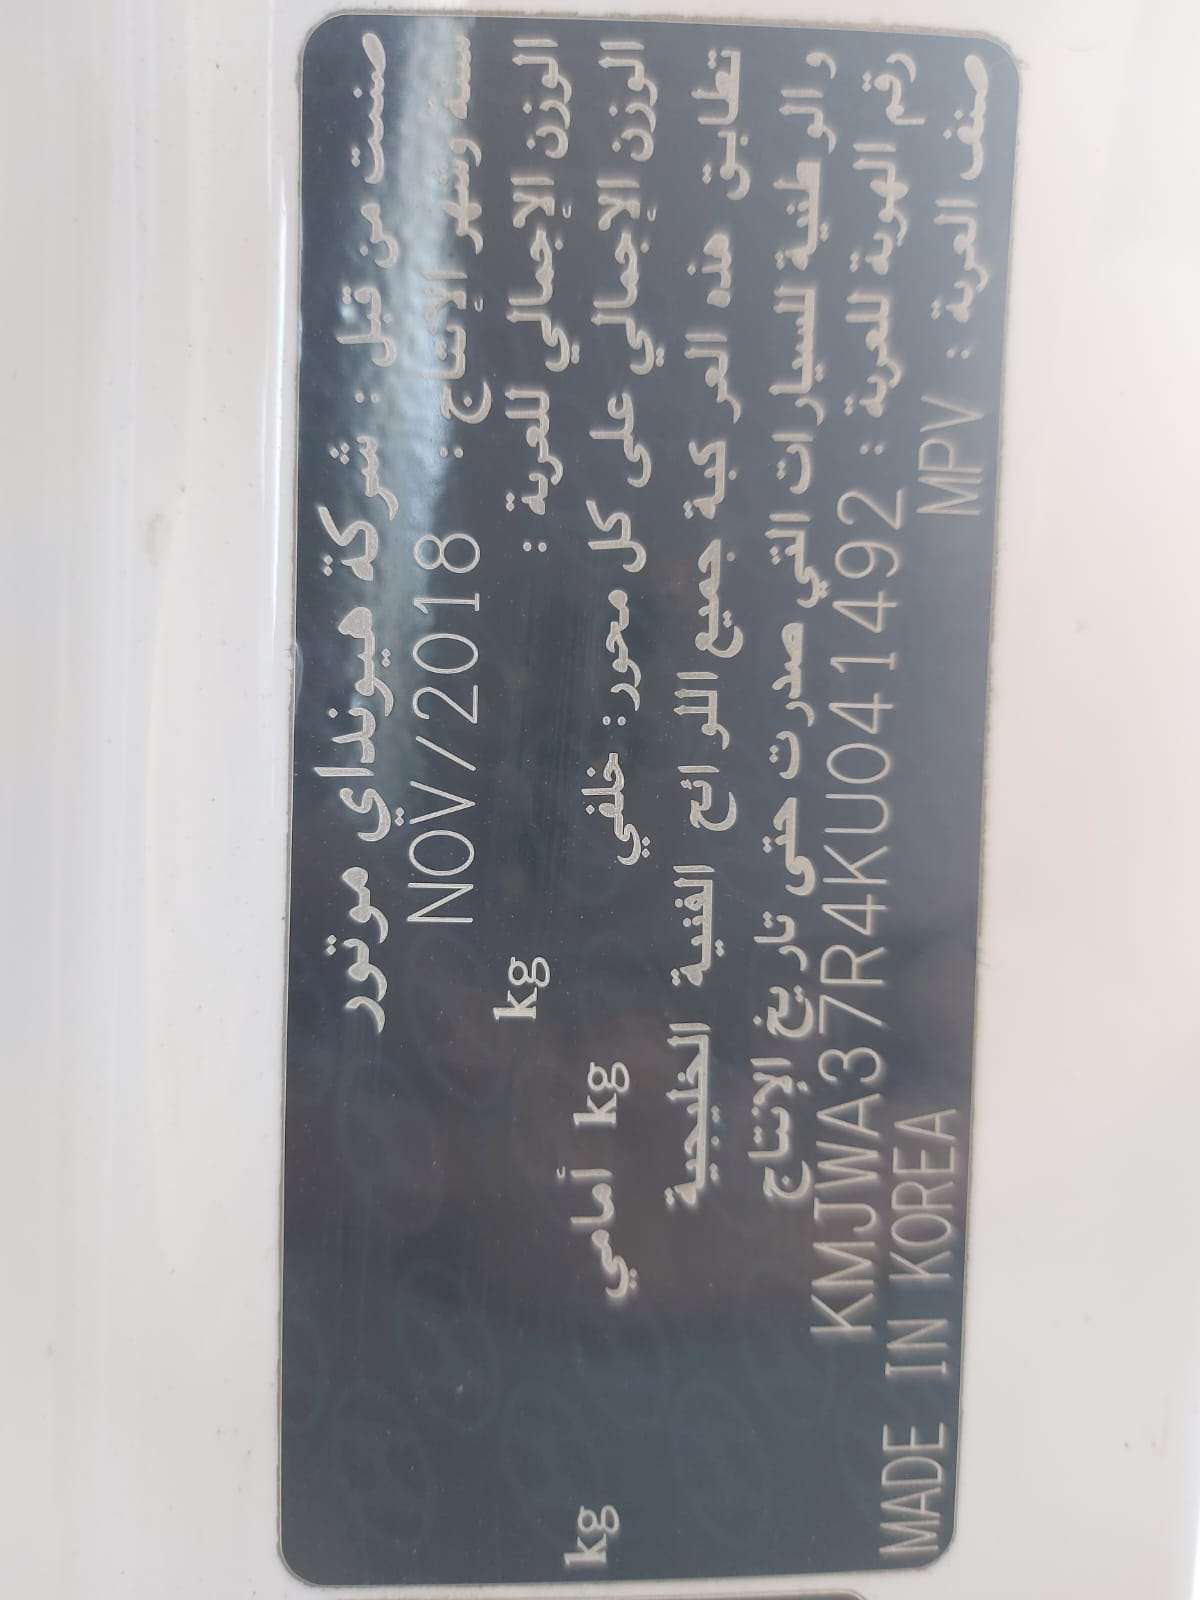 صنعت من قبل : شركة هيونداي موتور
سنة وشهر الإنتاج : NOV/2018
الوزن الإجمالي للعربة : kg
الوزن الإجمالي على كل محور : خلفي kg أمامي kg
تطابق هذه المركبة جميع اللوائح الفنية الخليجية
والوطنية للسيارات التي صدرت حتى تاريخ الإنتاج
رقم الهوية للعربة : KMJWA37R4KU041492
صنف العربة : MPV MADE IN KOREA